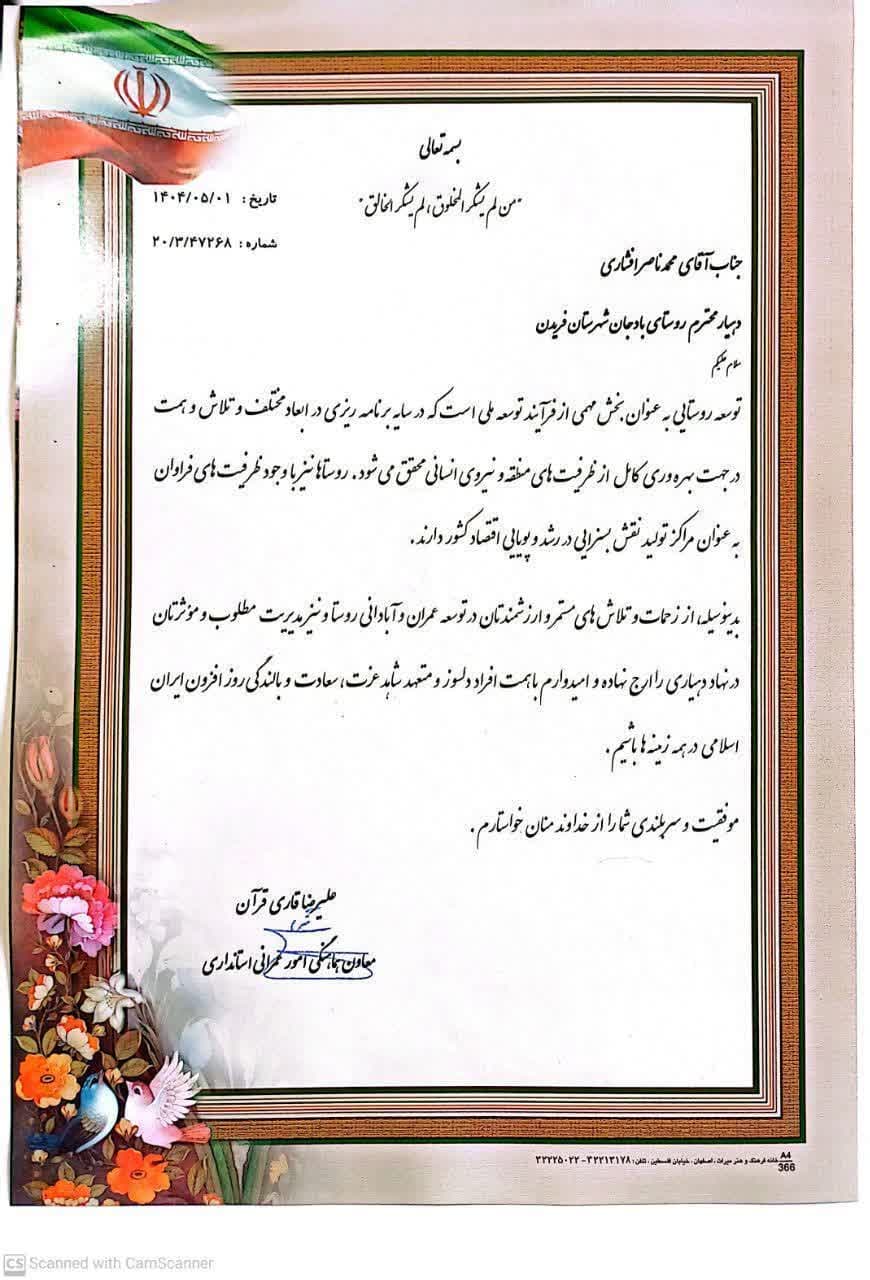 بسمه تعالی
"من لم یشکر المخلوق، لم یشکر الخالق"
تاریخ: ۱۴۰۴/۰۵/۰۱
شماره: ۲۰/۳/۴۷۲۶۸
جناب آقای محمد ناصر افشاری
دهیار محترم روستای بادجان شهرستان فریدن
سلام علیکم
توسعه روستایی به عنوان بخش مهمی از فرآیند توسعه ملی است که در سایه برنامه ریزی در ابعاد مختلف و تلاش و همت
در جهت بهره وری کامل از ظرفیت های منطقه و نیروی انسانی محقق می شود. روستاها نیز با وجود ظرفیت های فراوان
به عنوان مراکز تولید نقش بسزایی در رشد و پویایی اقتصاد کشور دارند.
بدینوسیله، از زحمات و تلاش های مستمر و ارزشمندتان در توسعه عمران و آبادانی روستا و نیز مدیریت مطلوب و مؤثرتان
در نهاد دهیاری را ارج نهاده و امیدوارم با همت افراد دلسوز و متعهد شاهد عزت، سعادت و بالندگی روز افزون ایران
اسلامی در همه زمینه ها باشیم.
موفقیت و سربلندی شما را از خداوند منان خواستارم.
علیرضا قاری قرآن
معاون هماهنگی امور عمرانی استانداری
A4
366
خانه فرهنگ و هنر میراث، اصفهان، خیابان فلسطین، تلفن: ۳۲۲۱۳۱۷۸-۳۲۲۲۵۰۲۲
CS Scanned with CamScanner